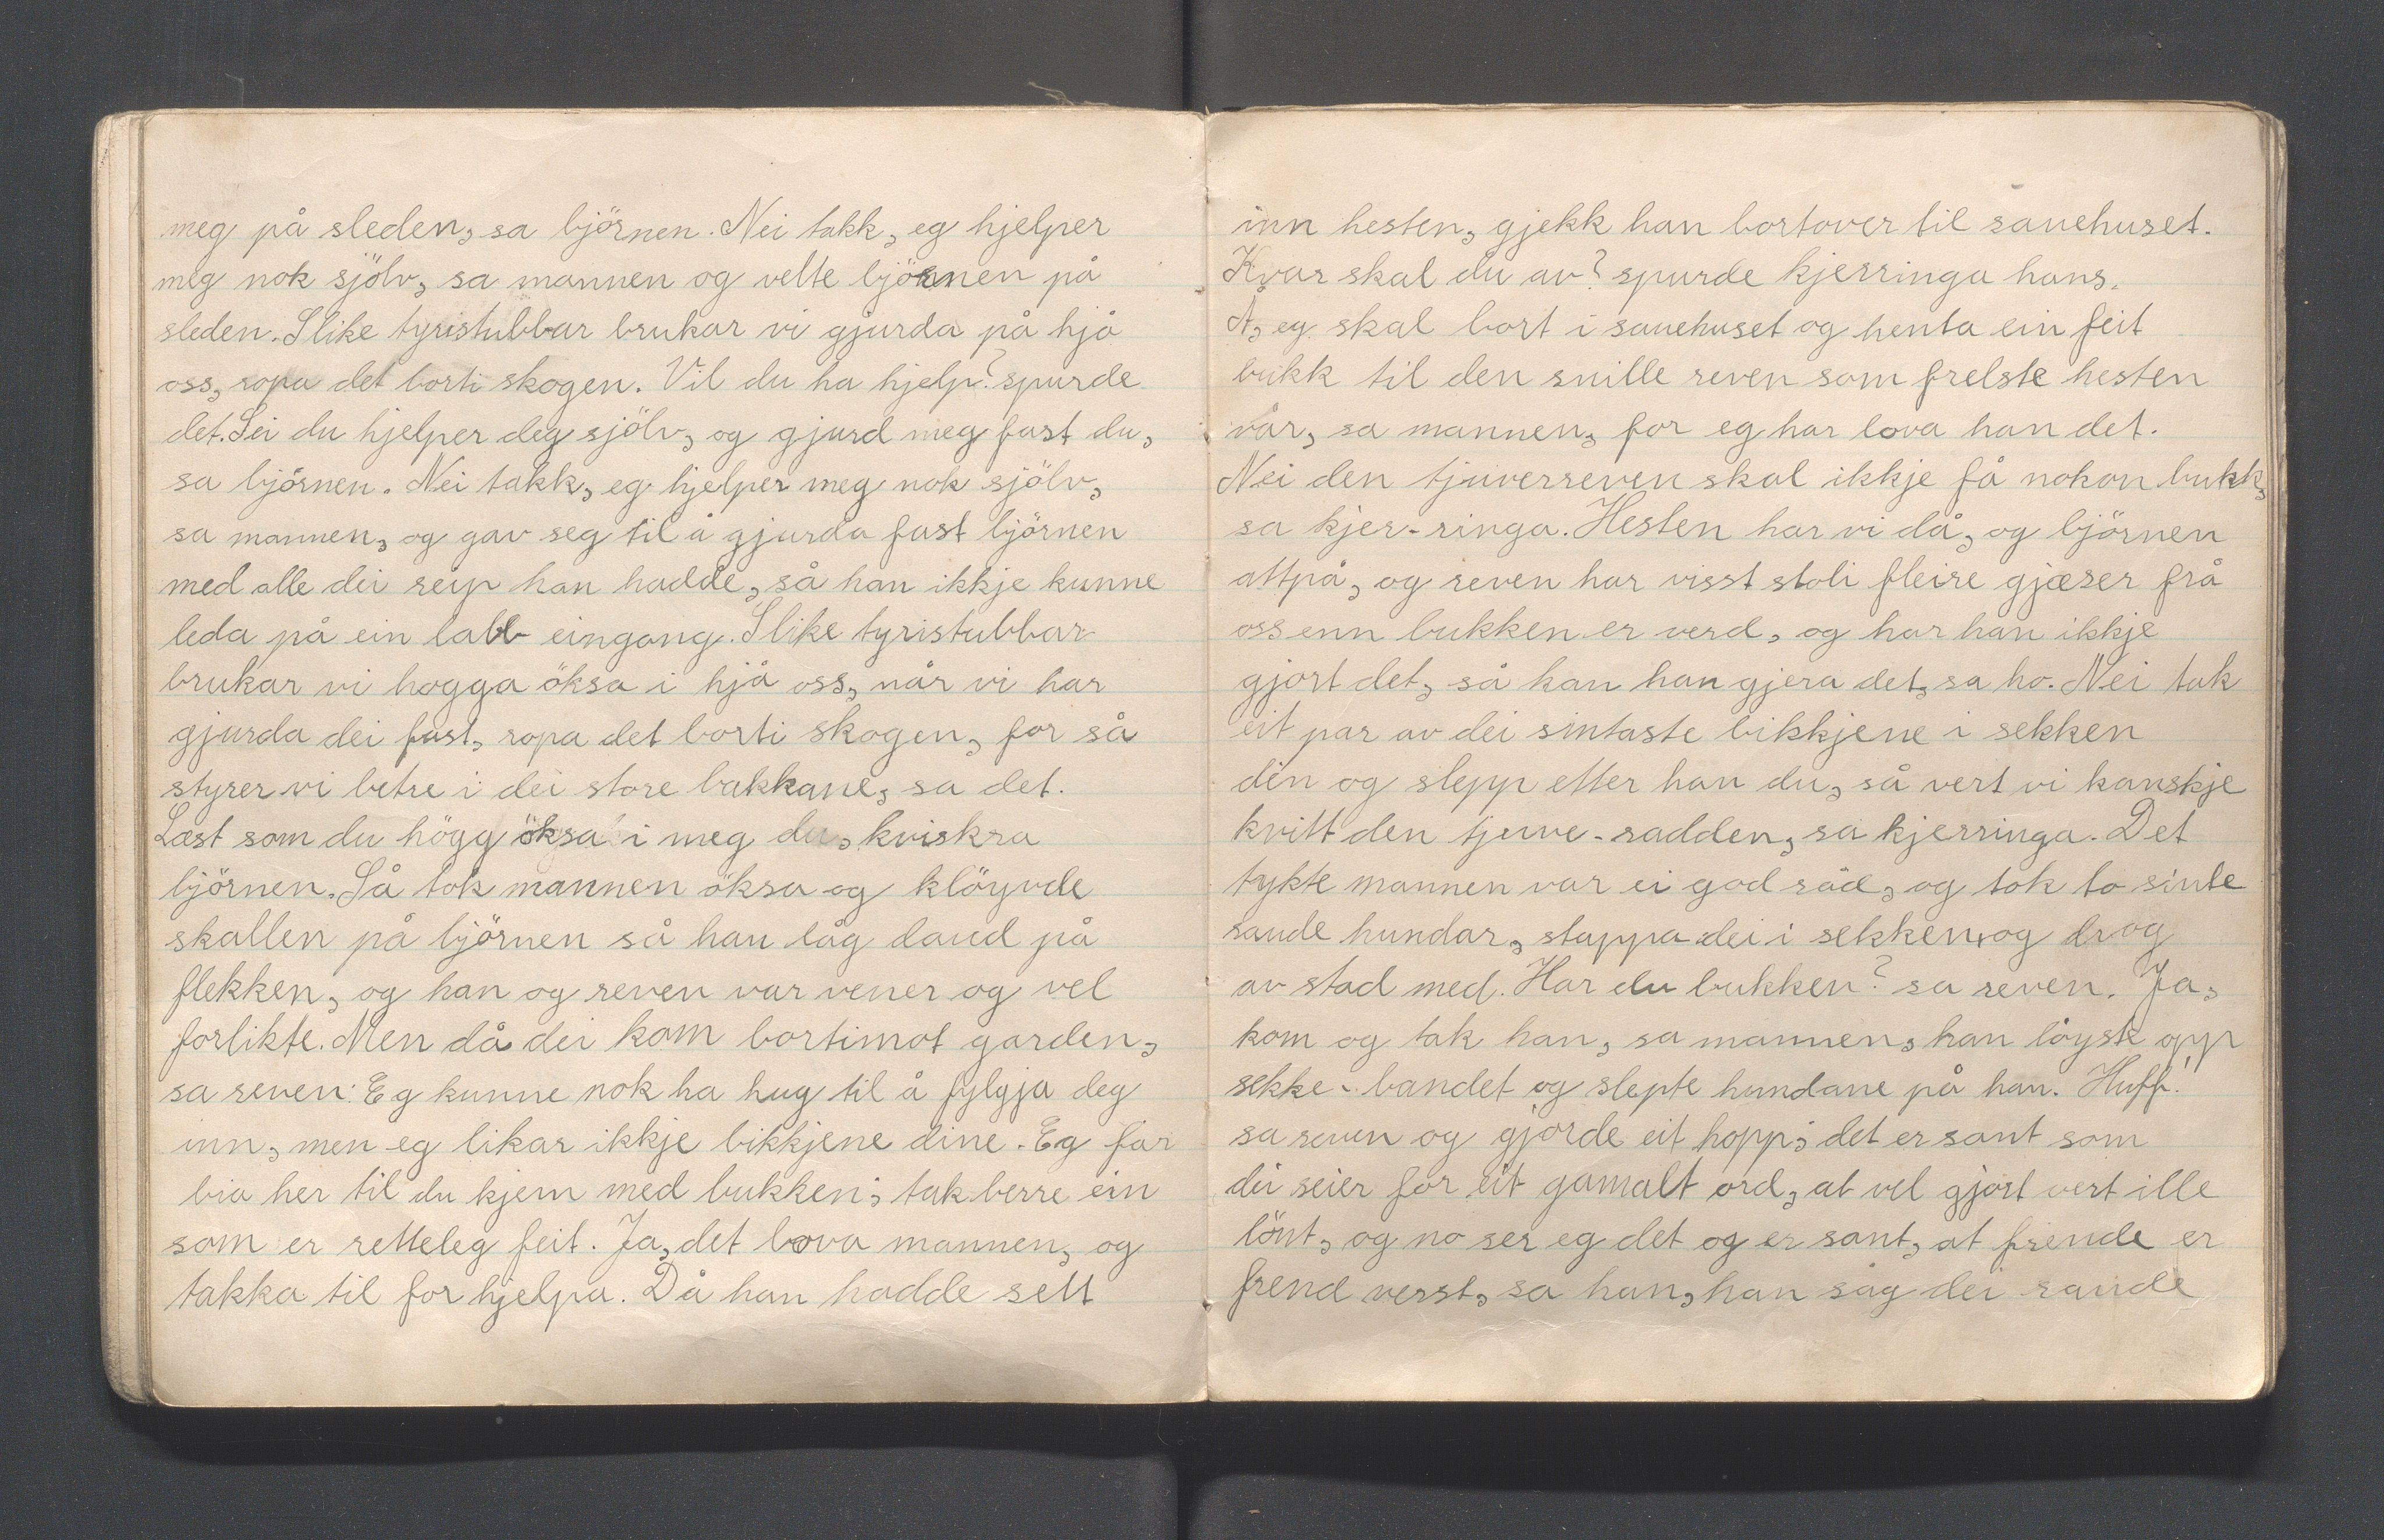 meg på sleden, sa björnen. Nei takk, eg hjelper
meg nok sjölv, sa mannen og velte björnen på
sleden. Slike tyristubbar brukar vi gjurda på hjå
oss, ropa det borti skogen. Vil du ha hjelp? spurde
det. Sei du hjelper deg sjölv, og gjurd meg fast du,
sa björnen. Nei takk, eg hjelper meg nok sjölv,
sa mannen, og gav seg til å gjurda fast björnen
med alle dei reip han hadde, så han ikkje kunne
leda på ein labb eingong. Slike tyristubbar
brukar vi hogga öksa i hjå oss, når vi har
gjurda dei fast, ropa det borti skogen, for så
styrer vi betre i dei store bakkane, sa det.
Læst som du högg öksa i meg du, kviskra
björnen. Så tok mannen öksa og klöyvde
skallen på björnen så han låg daud på
flekken, og han og reven var vener og vel
forlikte. Men då dei kom bortimot garden,
sa reven: Eg kunne nok ha hug til å fylgja deg
inn, men eg likar ikkje bikkjene dine. Eg får
bia her til du kjem med bukken; tak berre ein
som er retteleg feit. Ja, det lova mannen, og
takka til for hjelpa. Då han hadde sett
inn hesten, gjekk han bortover til sauehuset.
Kvar skal du av? spurde kjerringa hans.
Å, eg skal bort i sauehuset og henta ein feit
bukk til den snille reven som frelste hesten
vår, sa mannen, for eg har lova han det.
Nei den tjuverreven skal ikkje få nokon bukk,
sa kjer-ringa. Hesten har vi då, og björnen
attpå, og reven har visst stoli fleire gjæser frå
oss enn bukken er verd, og har han ikkje
gjort det, så kan han gjera det, sa ho. Nei tak
eit par av dei sintaste bikkjene i sekken
din og slepp etter han du, så vert vi kanskje
kvitt den tjuve-radden, sa kjerringa. Det
tykte mannen var ei god råd, og tok to sinte
raude hundar, stappa dei i sekken, og drog
av stad med. Har du bukken? sa reven. Ja,
kom og tak han, sa mannen, han löyste opp
sekke-bandet og slepte hundane på han. Huff!
sa reven og gjorde eit hopp; det er sant som
dei seier for eit gamalt ord, at vel gjort vert ille
lönt, og no ser eg det og er sant, at frende er
frend verst, sa han, han såg dei raude